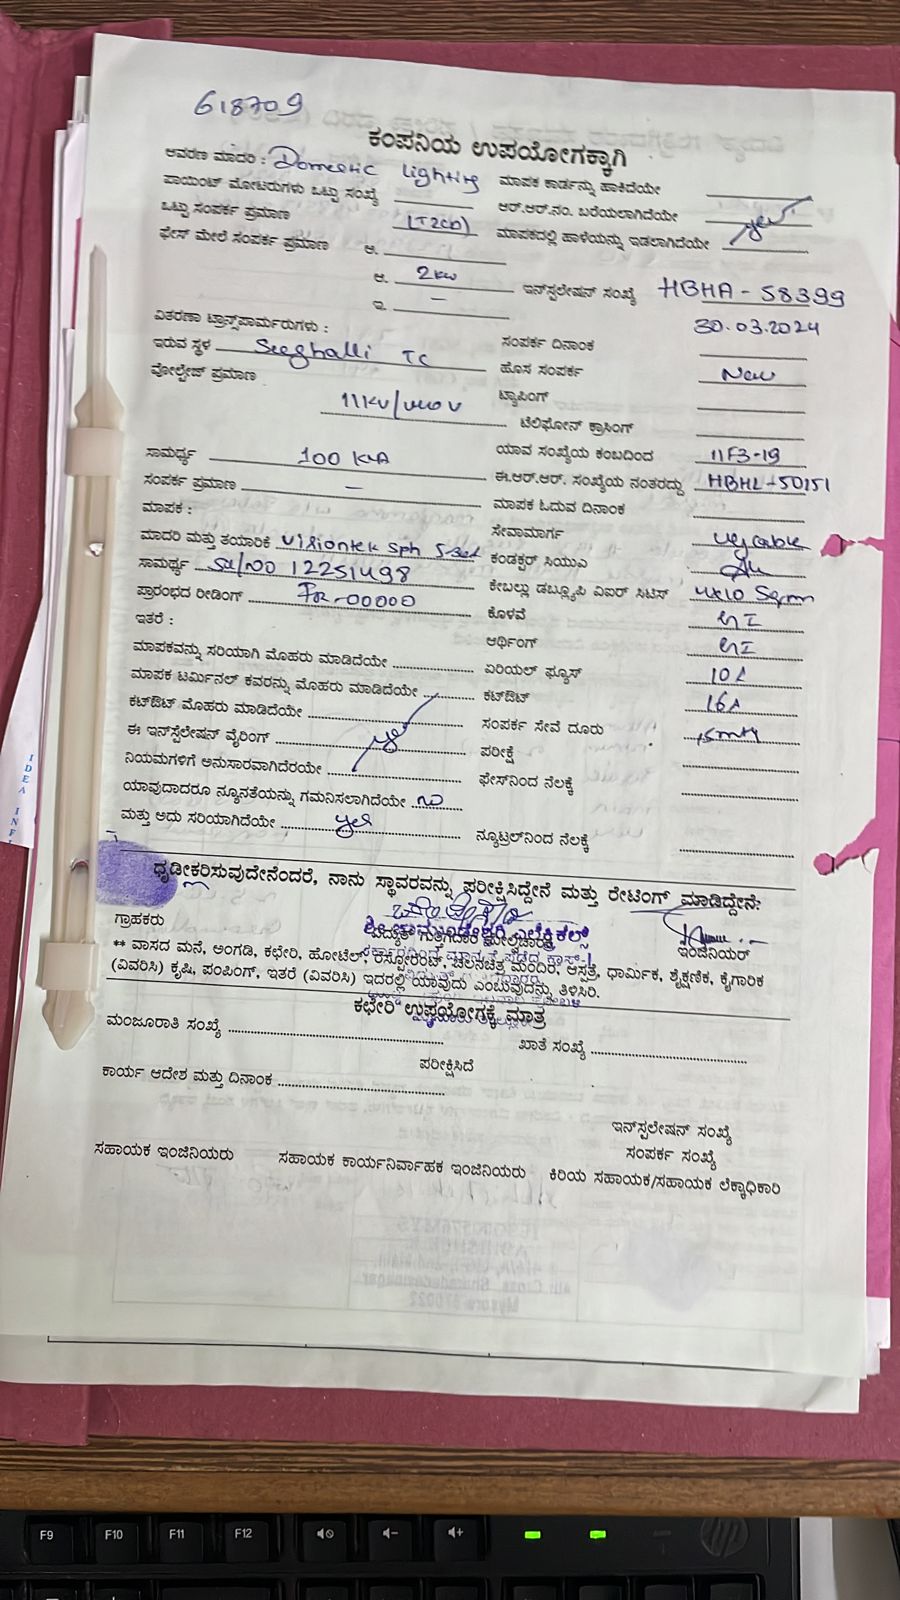 618709
ಕಂಪನಿಯ ಉಪಯೋಗಕ್ಕಾಗಿ
ಆವರಣ ಮಾದರಿ : Domestic Lighting ಮಾಪಕ ಕಾರ್ಡನ್ನು ಹಾಕಿದೆಯೇ
ಪಾಯಿಂಟ್ ಮೋಟರುಗಳು ಒಟ್ಟು ಸಂಖ್ಯೆ ಆರ್.ಆರ್.ನಂ. ಬರೆಯಲಾಗಿದೆಯೇ yes
ಒಟ್ಟು ಸಂಪರ್ಕ ಪ್ರಮಾಣ ಮಾಪಕದಲ್ಲಿ ಹಾಳೆಯನ್ನು ಇಡಲಾಗಿದೆಯೇ
ಫೇಸ್ ಮೇಲೆ ಸಂಪರ್ಕ ಪ್ರಮಾಣ ಅ.
ಆ. 2kw ಇನ್‌ಸ್ಟಲೇಷನ್ ಸಂಖ್ಯೆ HBHA - 58399
ಇ. –
ವಿತರಣಾ ಟ್ರಾನ್ಸ್‌ಫಾರ್ಮರುಗಳು : ಸಂಪರ್ಕ ದಿನಾಂಕ 30.03.2024
ಇರುವ ಸ್ಥಳ Seeghalli TC ಹೊಸ ಸಂಪರ್ಕ New
ವೋಲ್ಟೇಜ್ ಪ್ರಮಾಣ ಟ್ಯಾಪಿಂಗ್
11KV/440V ಟೆಲಿಫೋನ್ ಕ್ರಾಸಿಂಗ್
ಸಾಮರ್ಥ್ಯ 100 KVA ಯಾವ ಸಂಖ್ಯೆಯ ಕಂಬದಿಂದ 11F3-19
ಸಂಪರ್ಕ ಪ್ರಮಾಣ – ಈ.ಆರ್.ಆರ್. ಸಂಖ್ಯೆಯ ನಂತರದ್ದು HBHL-50151
ಮಾಪಕ : ಮಾಪಕ ಓದುವ ದಿನಾಂಕ
ಮಾದರಿ ಮತ್ತು ತಯಾರಿಕೆ Visiontek Sph ಸೇವಾಮಾರ್ಗ ug cable
ಸಾಮರ್ಥ್ಯ Sl/NO 12251498 ಕಂಡಕ್ಟರ್ ಸಿಯುಎ
ಪ್ರಾರಂಭದ ರೀಡಿಂಗ್ FR-00000 ಕೇಬಲ್ಲು ಡಬ್ಲ್ಯೂಪಿ ವಿಐರ್ ಸಿಟಿಸ್ 4x10 Sqmm
ಇತರೆ : ಕೊಳವೆ GI
ಆರ್ಥಿಂಗ್ GI
ಮಾಪಕವನ್ನು ಸರಿಯಾಗಿ ಮೊಹರು ಮಾಡಿದೆಯೇ ಏರಿಯಲ್ ಫ್ಯೂಸ್ 10A
ಮಾಪಕ ಟರ್ಮಿನಲ್ ಕವರನ್ನು ಮೊಹರು ಮಾಡಿದೆಯೇ ಕಟ್‌ಔಟ್ 16A
ಕಟ್‌ಔಟ್ ಮೊಹರು ಮಾಡಿದೆಯೇ ಸಂಪರ್ಕ ಸೇವೆ ದೂರು 15mtr
ಈ ಇನ್‌ಸ್ಟಲೇಷನ್ ವೈರಿಂಗ್ yes ಪರೀಕ್ಷೆ
ನಿಯಮಗಳಿಗೆ ಅನುಸಾರವಾಗಿದೆರಯೇ ಫೇಸ್‌ನಿಂದ ನೆಲಕ್ಕೆ
ಯಾವುದಾದರೂ ನ್ಯೂನತೆಯನ್ನು ಗಮನಿಸಲಾಗಿದೆಯೇ NO
ಮತ್ತು ಅದು ಸರಿಯಾಗಿದೆಯೇ yes ನ್ಯೂಟ್ರಲ್‌ನಿಂದ ನೆಲಕ್ಕೆ
ಧೃಡೀಕರಿಸುವುದೇನೆಂದರೆ, ನಾನು ಸ್ಥಾವರವನ್ನು ಪರೀಕ್ಷಿಸಿದ್ದೇನೆ ಮತ್ತು ರೇಟಿಂಗ್ ಮಾಡಿದ್ದೇನೆ:
ಶ್ರೀ ಚಾಮುಂಡೇಶ್ವರಿ ಎಲೆಕ್ಟ್ರಿಕಲ್ಸ್
ಗ್ರಾಹಕರು ವಿದ್ಯುತ್ ಗುತ್ತಿಗೆದಾರ ಮೇಲ್ವಿಚಾರಕ ಇಂಜಿನಿಯರ್
** ವಾಸದ ಮನೆ, ಅಂಗಡಿ, ಕಛೇರಿ, ಹೋಟೆಲ್, ರೆಸ್ಟೋರೆಂಟ್, ಚಲನಚಿತ್ರ ಮಂದಿರ, ಆಸ್ಪತ್ರೆ, ಧಾರ್ಮಿಕ, ಶೈಕ್ಷಣಿಕ, ಕೈಗಾರಿಕ
(ವಿವರಿಸಿ) ಕೃಷಿ, ಪಂಪಿಂಗ್, ಇತರೆ (ವಿವರಿಸಿ) ಇದರಲ್ಲಿ ಯಾವುದು ಎಂಬುವುದನ್ನು ತಿಳಿಸಿರಿ.
ಕಛೇರಿ ಉಪಯೋಗಕ್ಕೆ ಮಾತ್ರ
ಮಂಜೂರಾತಿ ಸಂಖ್ಯೆ ಖಾತೆ ಸಂಖ್ಯೆ
ಪರೀಕ್ಷಿಸಿದೆ
ಕಾರ್ಯ ಆದೇಶ ಮತ್ತು ದಿನಾಂಕ
ಇನ್‌ಸ್ಟಲೇಷನ್ ಸಂಖ್ಯೆ
ಸಂಪರ್ಕ ಸಂಖ್ಯೆ
ಸಹಾಯಕ ಇಂಜಿನಿಯರು ಸಹಾಯಕ ಕಾರ್ಯನಿರ್ವಾಹಕ ಇಂಜಿನಿಯರು ಕಿರಿಯ ಸಹಾಯಕ/ಸಹಾಯಕ ಲೆಕ್ಕಾಧಿಕಾರಿ
IDEA INF
F9 F10 F11 F12